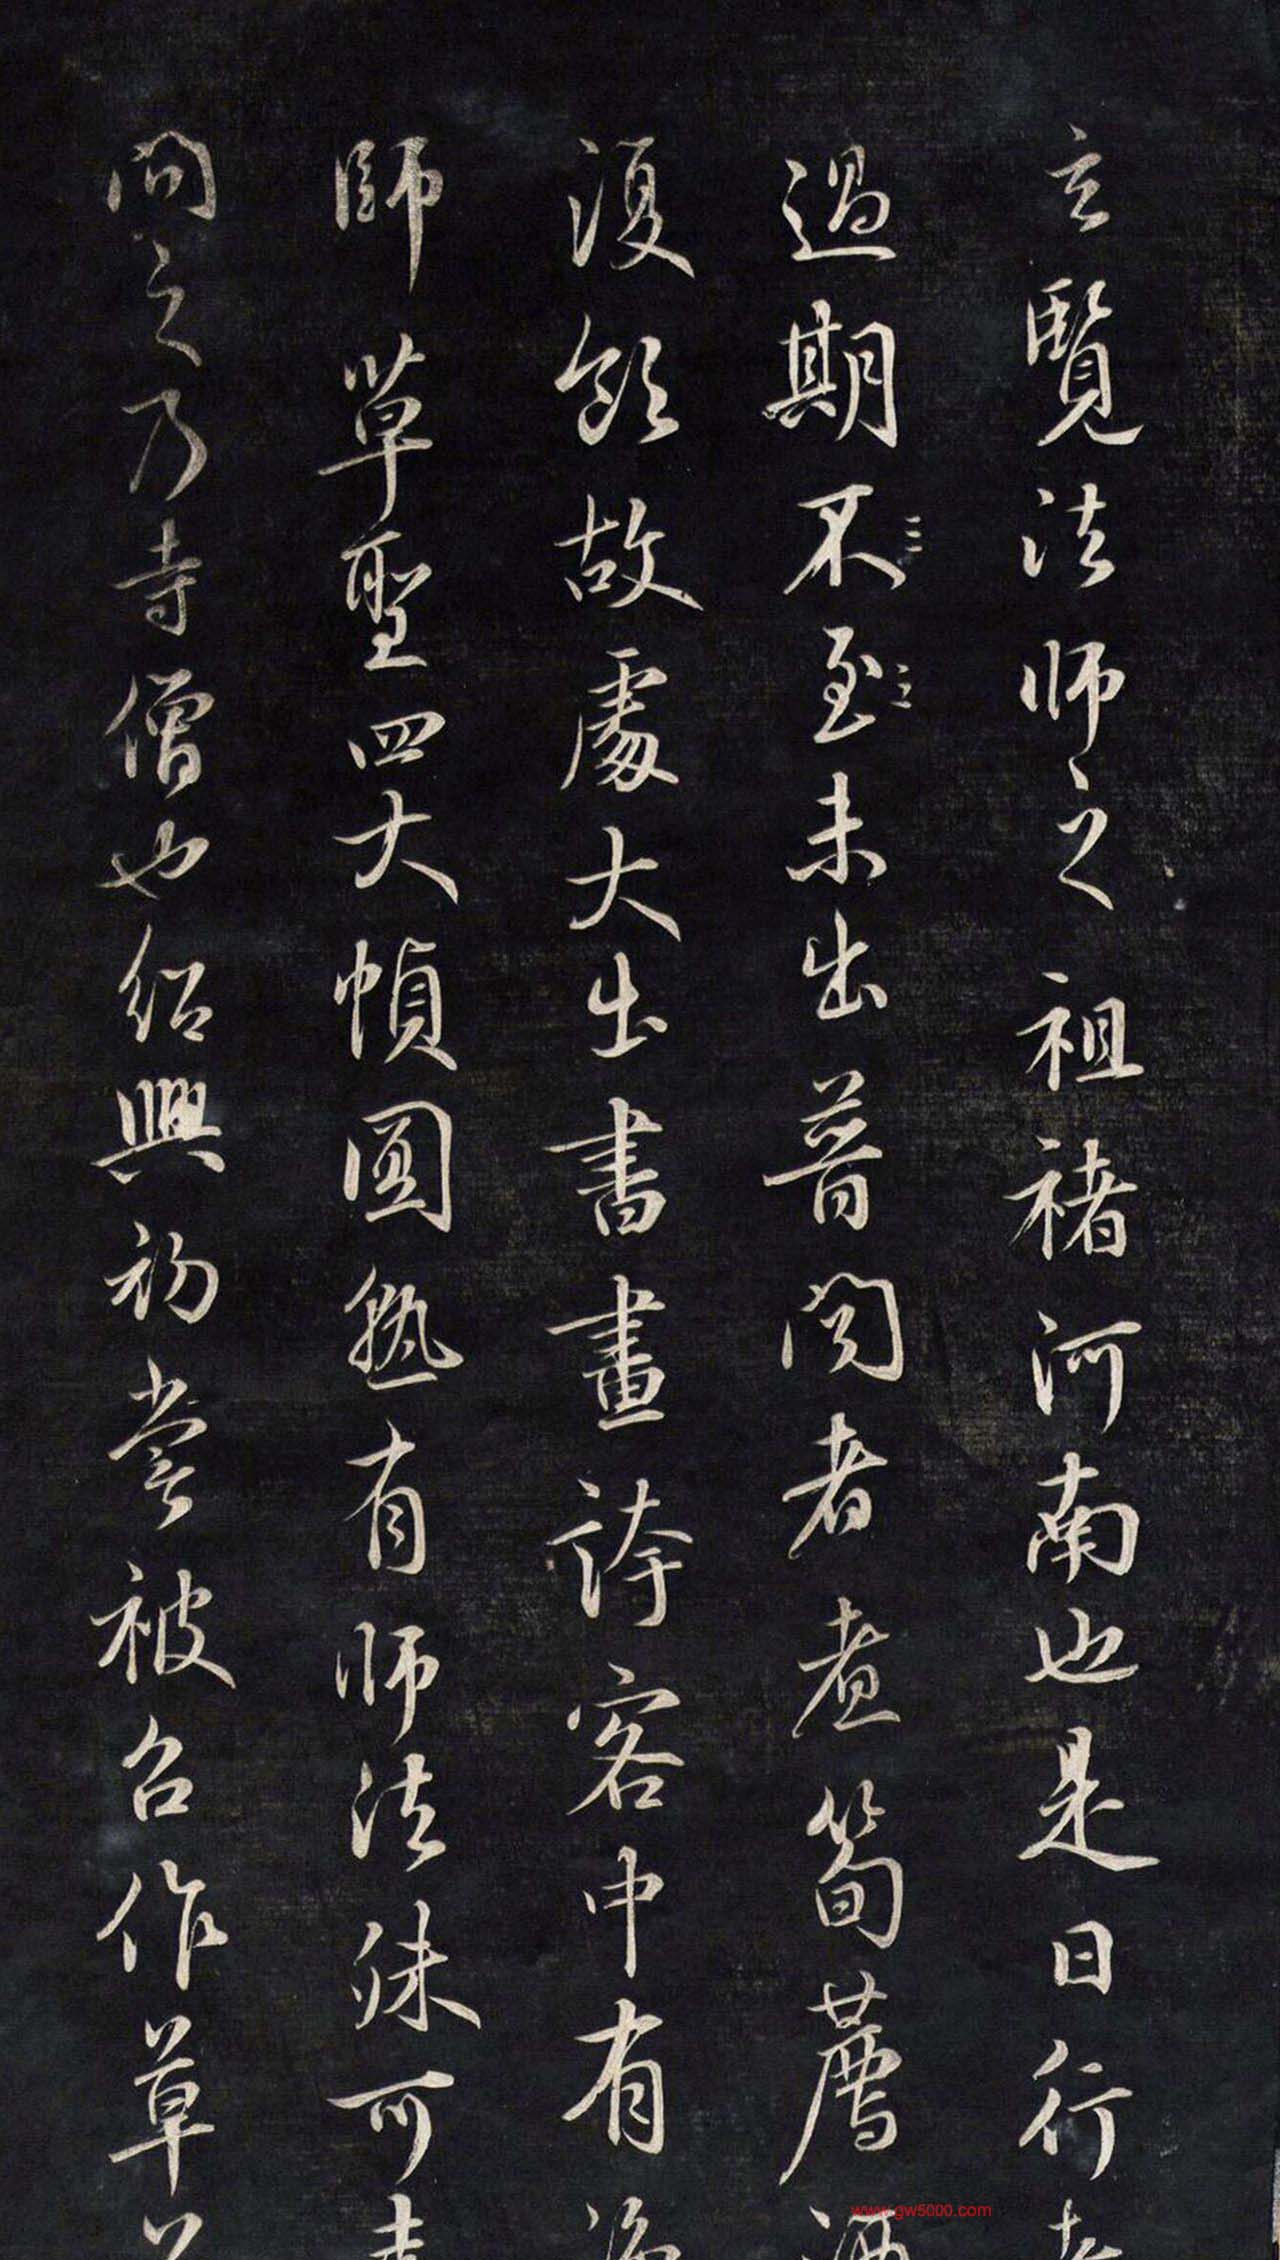 玄覽法師之祖褚河南也是日行者
過期不至未出普閱者煮筍薦酒
復飲故處大出書畫誇客中有
師草聖四大幀圓熟有师法殊可
問之乃寺僧也紹興初嘗被召作草
www.gw5000.com